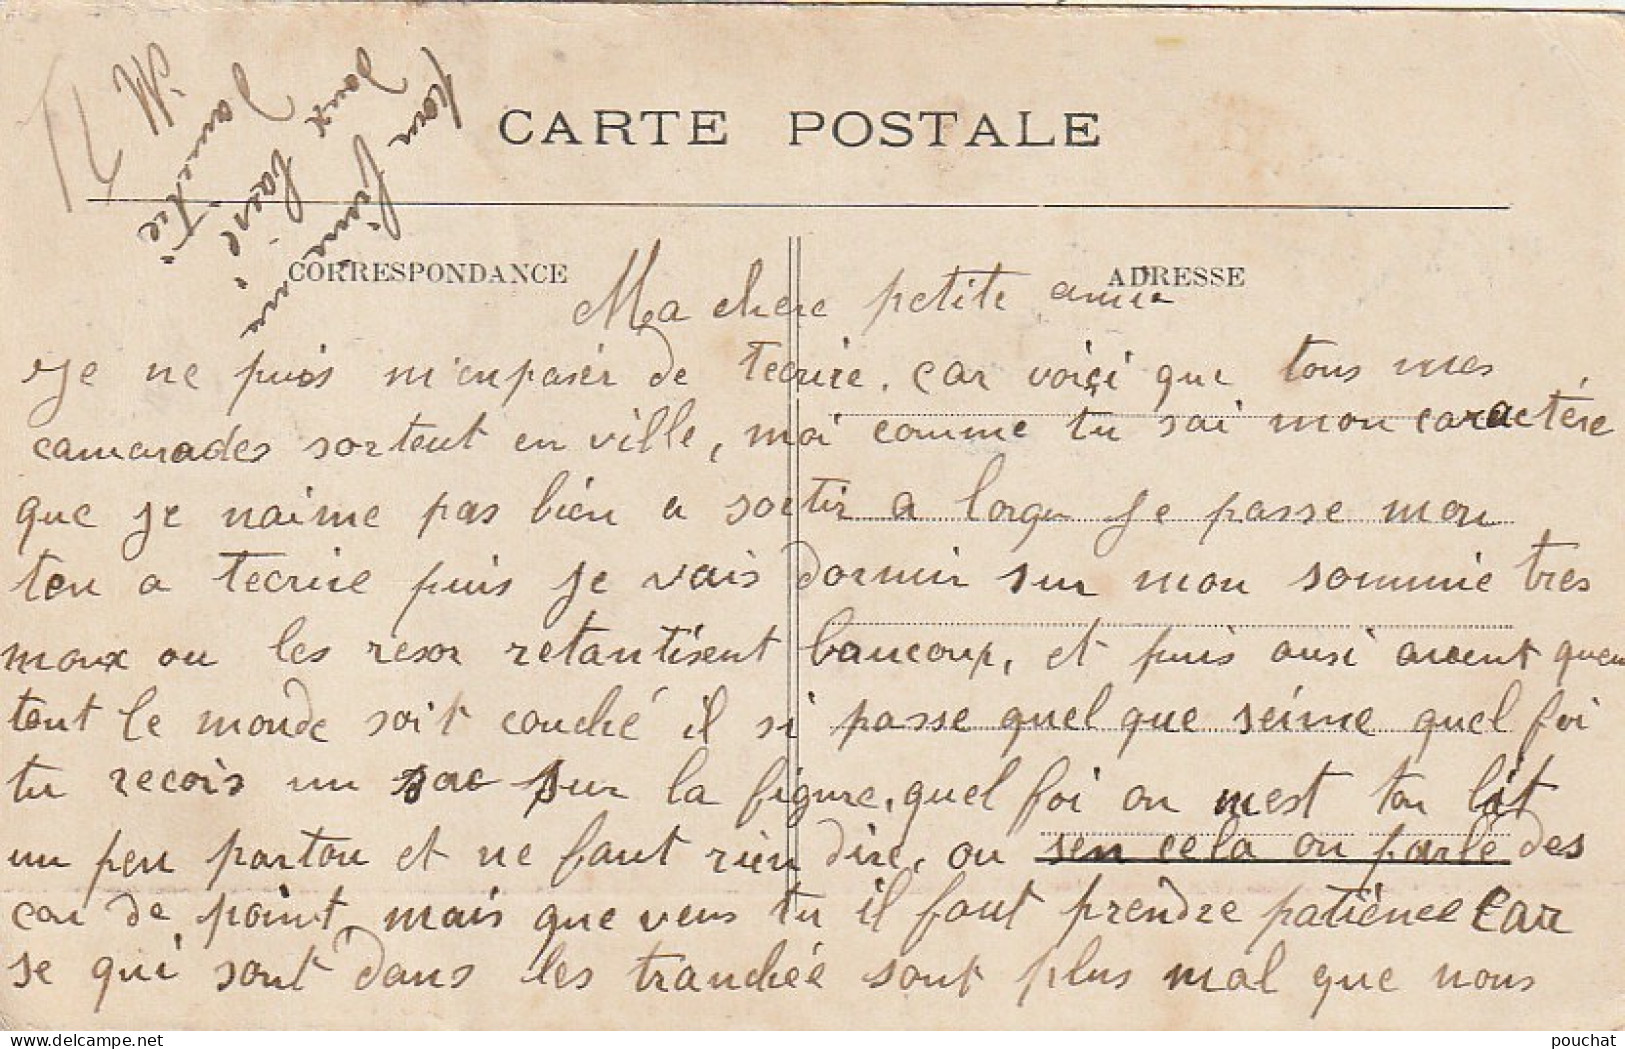 pour finir
doux baisé
CARTE POSTALE
CORRESPONDANCE
ADRESSE
Ma chere petite amie
Je ne puis m'enpasér de tecrire. car voiçi que tous mes
camarades sortent en ville, moi comme tu sai mon caractére
que je naime pas bien a sortir a lorgu Je passe mon
ten a tecrire puis je vais dormir sur mon sommie tres
moux ou les resor retantisent baucoup, et puis ausi avent quen
tout le monde soit couché il si passe quel que séime quel foi
tu recois un sac sur la figure, quel foi on mest ton lit
un peu partou et ne faut rien dire, ou sen cela on parle des
cou de point, mais que veus tu il faut prendre patiènce Car
se qui sont dans les tranchée sont plus mal que nous
www.delcampe.net
pouchat